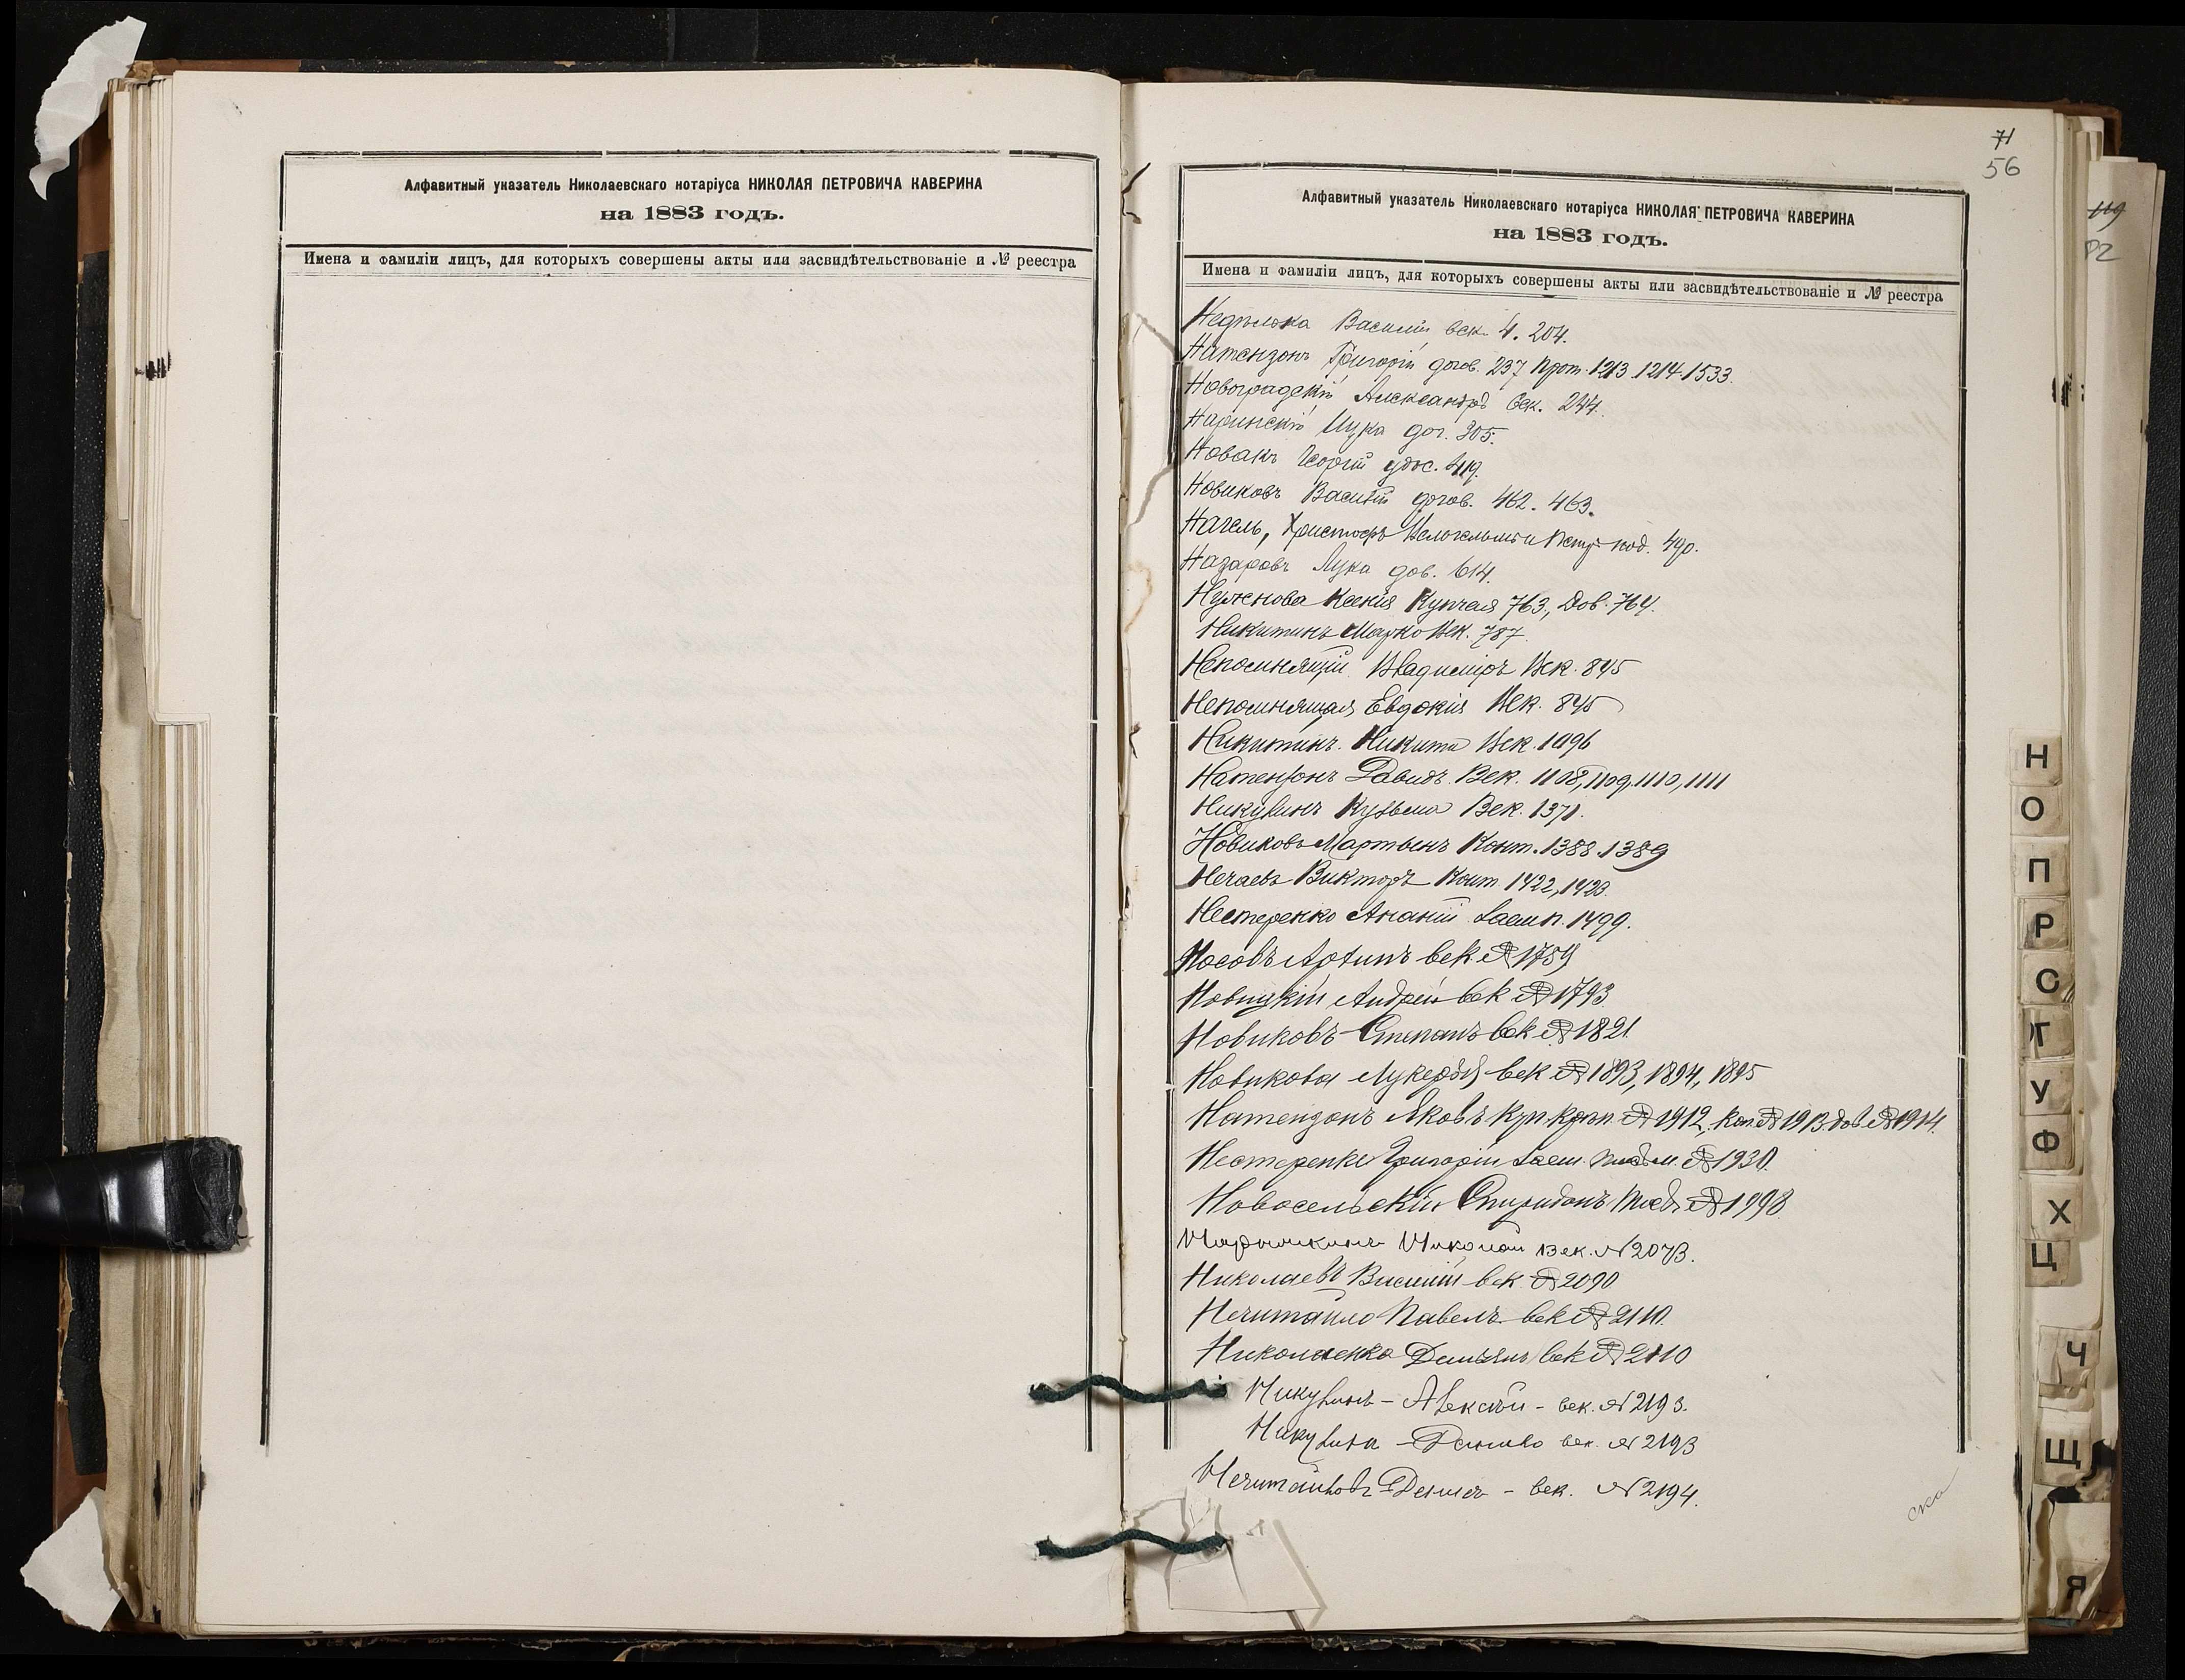 Алфавитный указатель Николаевскаго нотаріуса НИКОЛАЯ ПЕТРОВИЧА КАВЕРИНА
на 1883 годъ.
Имена и фамиліи лицъ, для которыхъ совершены акты или засвидѣтельствованіе и № реестра
71
56
Алфавитный указатель Николаевскаго нотаріуса НИКОЛАЯ ПЕТРОВИЧА КАВЕРИНА
на 1883 годъ.
Имена и фамиліи лицъ, для которыхъ совершены акты или засвидѣтельствованіе и № реестра
Василій век. 4. 204.
Натензонъ Григорій догов. 237 Прот. 1213. 1214. 1533.
Новоградскій Александръ Век. 244.
Лука дог. 305.
Новакъ Георгій удос. 419.
Новиковъ Василій догов. 462. 463.
Нагель, Христофъ Вельгельмъ и Петръ 490.
Назаровъ Лука дов. 614.
Нужснова Ксенія Купчая 763, Дов. 764.
Никитинъ Марко Век. 787.
Непомнящій Владиміръ Век. 845
Непомнящая Евдокія Век. 845
Никитинъ Никита Век. 1096
Натензонъ Давидъ Век. 1108, 1109, 1110, 1111
Никулинъ Кузьма Век. 1371.
Новиковъ Мартынъ Конт. 1388. 1389
Нечаевъ Викторъ Конт. 1422, 1423.
Нестеренко Ананій 1499.
Носовъ век. № 1759
Новицкій Андрей век № 1793
Новиковъ Степанъ век № 1821.
Новикова Лукерья век № 1893, 1894, 1895
Натензонъ Яковъ Куп. крѣп. № 1912, коп. № 1913. дов № 1914.
Нестеренко Григорій № 1930.
Новосельскій Спиридонъ № 1998
Нарышкинъ Николай век. № 2073.
Николаевъ Василій век № 2090
Нечитайло Павелъ век № 2110.
Николаенко Демьянъ век № 2110
Никулинъ – Алексѣй – век. № 2193.
Никулина – век. № 2193
Нечитайловъ – Денисъ – век. № 2194.
119
82
Н
О
П
Р
С
Т
У
Ф
Х
Ц
Ч
Щ
Я